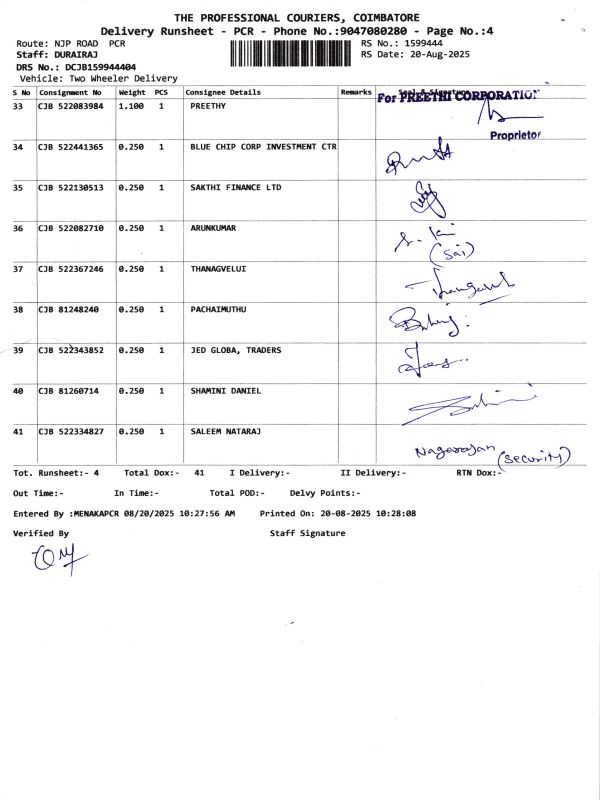 THE PROFESSIONAL COURIERS, COIMBATORE
Delivery Runsheet - PCR - Phone No.:9047080280 - Page No.:4
Route: NJP ROAD PCR RS No.: 1599444
Staff: DURAIRAJ RS Date: 20-Aug-2025
DRS No.: DCJB159944404
Vehicle: Two Wheeler Delivery
S No Consignment No Weight PCS Consignee Details Remarks Seal & Signature
For PREETHI CORPORATION
33 CJB 522083984 1.100 1 PREETHY
Proprietor
34 CJB 522441365 0.250 1 BLUE CHIP CORP INVESTMENT CTR
35 CJB 522130513 0.250 1 SAKTHI FINANCE LTD
36 CJB 522082710 0.250 1 ARUNKUMAR
(Sai)
37 CJB 522367246 0.250 1 THANAGVELUI
38 CJB 81248240 0.250 1 PACHAIMUTHU
39 CJB 522343852 0.250 1 JED GLOBA, TRADERS
40 CJB 81260714 0.250 1 SHAMINI DANIEL
41 CJB 522334827 0.250 1 SALEEM NATARAJ
Nagarajan (Security)
Tot. Runsheet:- 4 Total Dox:- 41 I Delivery:- II Delivery:- RTN Dox:-
Out Time:- In Time:- Total POD:- Delvy Points:-
Entered By :MENAKAPCR 08/20/2025 10:27:56 AM Printed On: 20-08-2025 10:28:08
Verified By Staff Signature